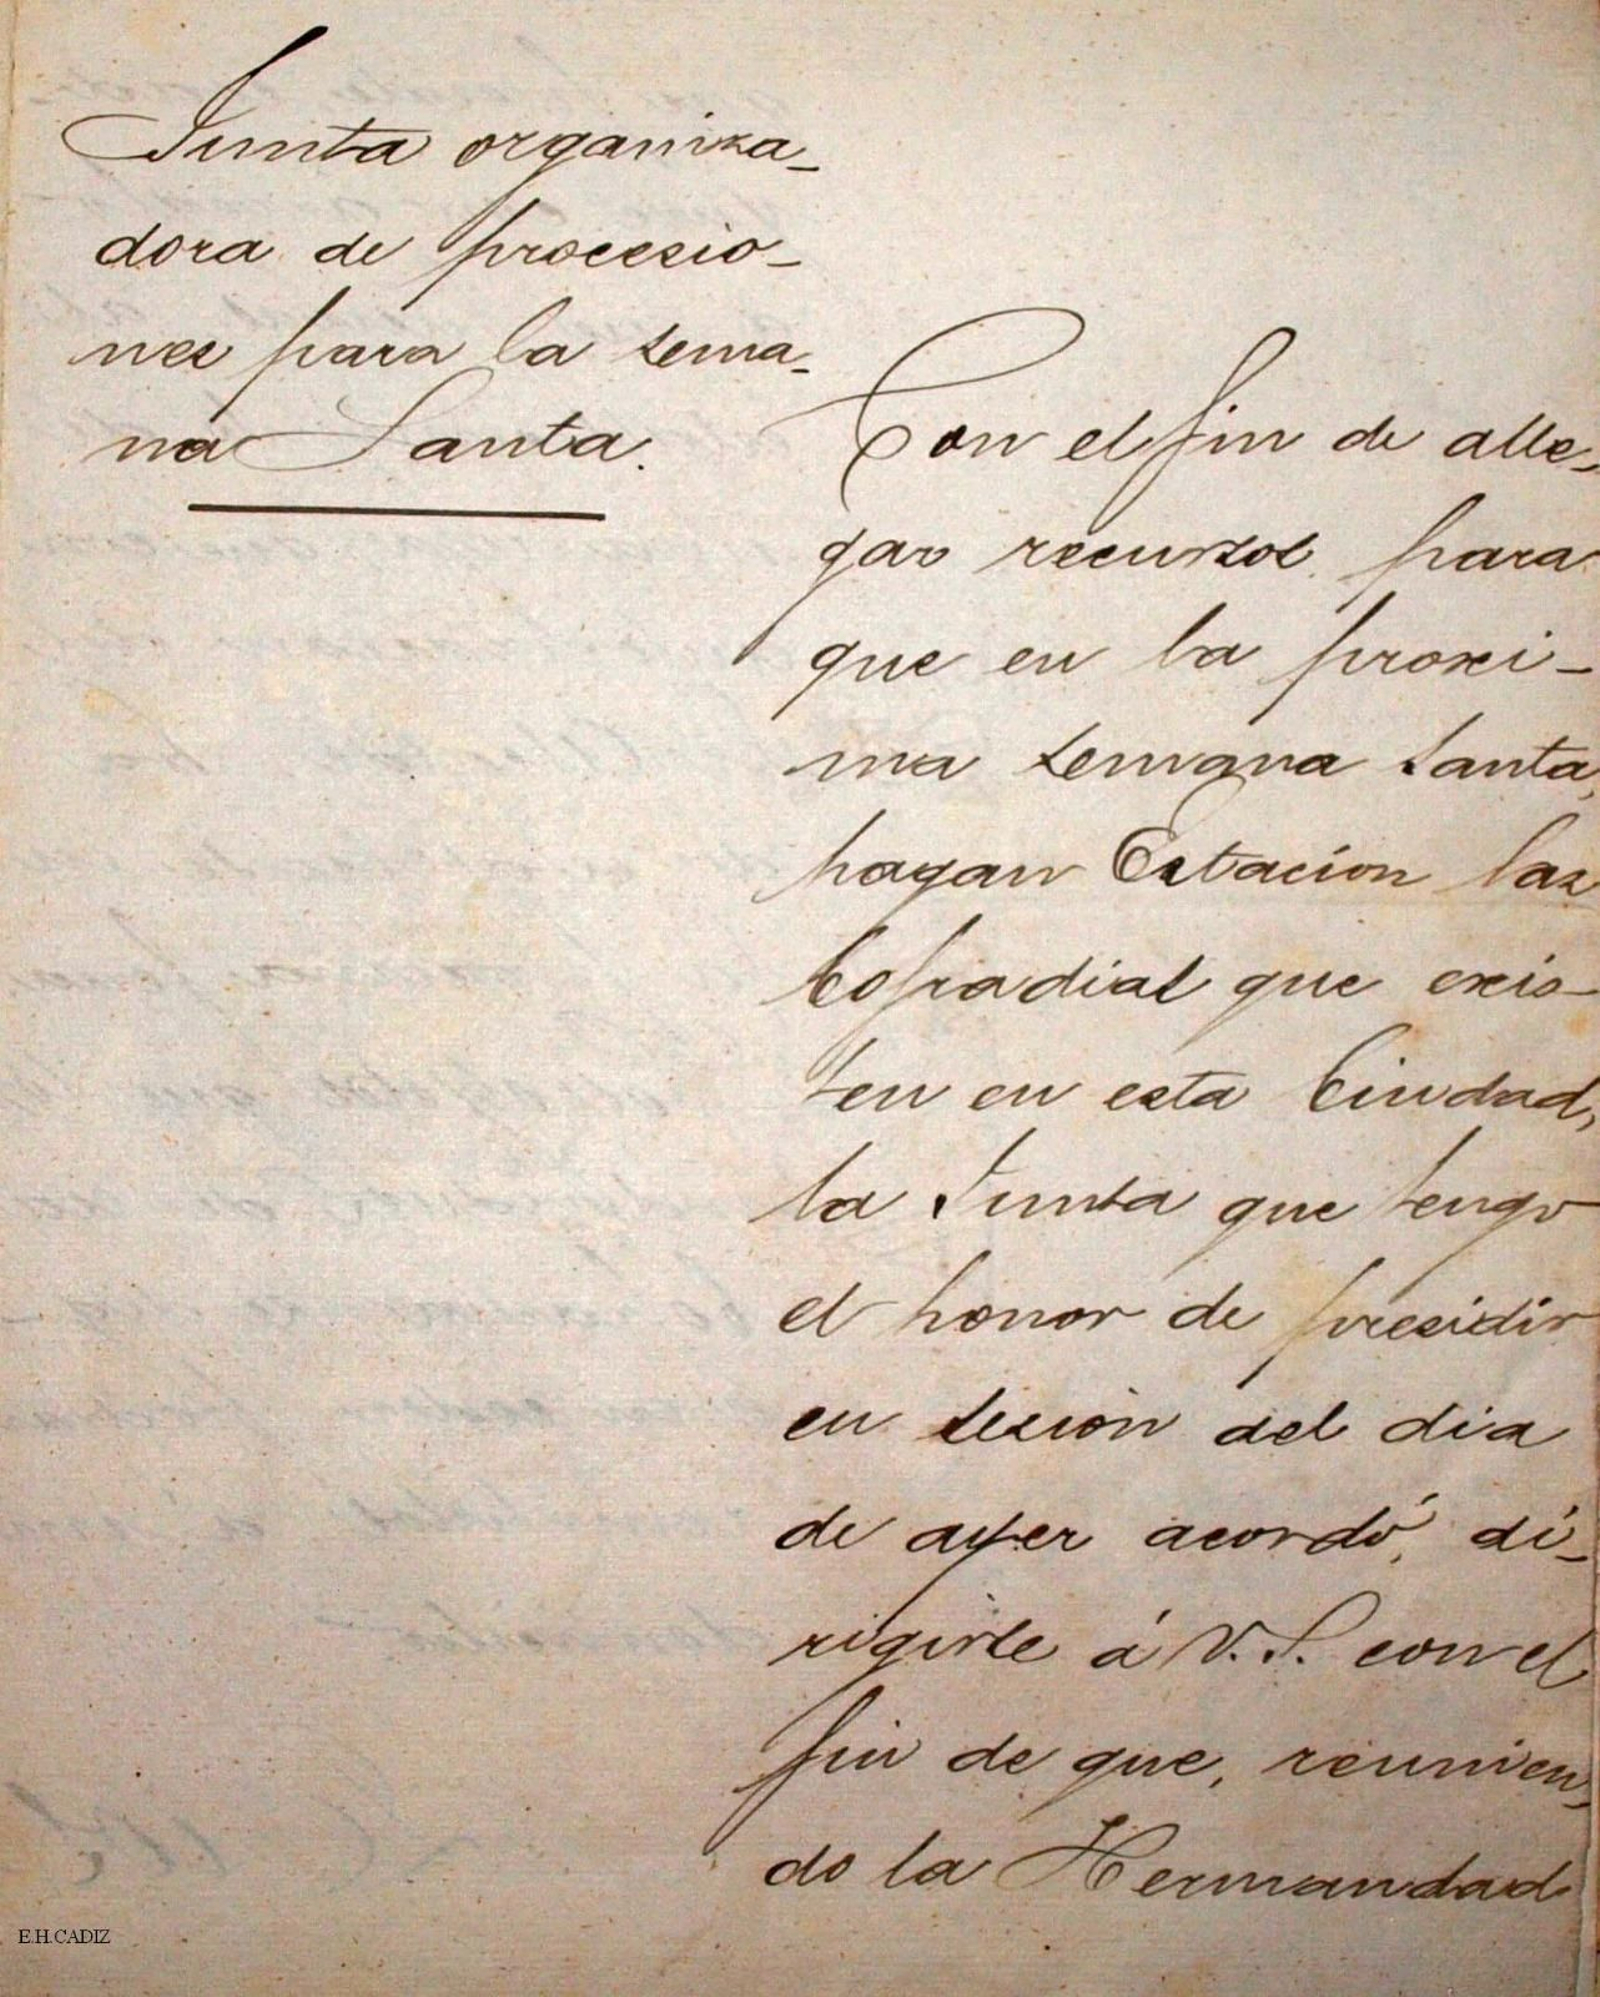 Junta organiza-
dora de procesio-
nes para la sema-
na Santa.
Con el fin de alle-
gar recursos para
que en la proxi-
ma semana Santa,
hagan Estacion las
Cofradias que exis-
ten en esta Ciudad,
la Junta que tengo
el honor de presidir
en sesion del dia
de ayer acordó, di-
rigirse á V. S. con el
fin de que, reunien-
do la Hermandad
E.H.CADIZ